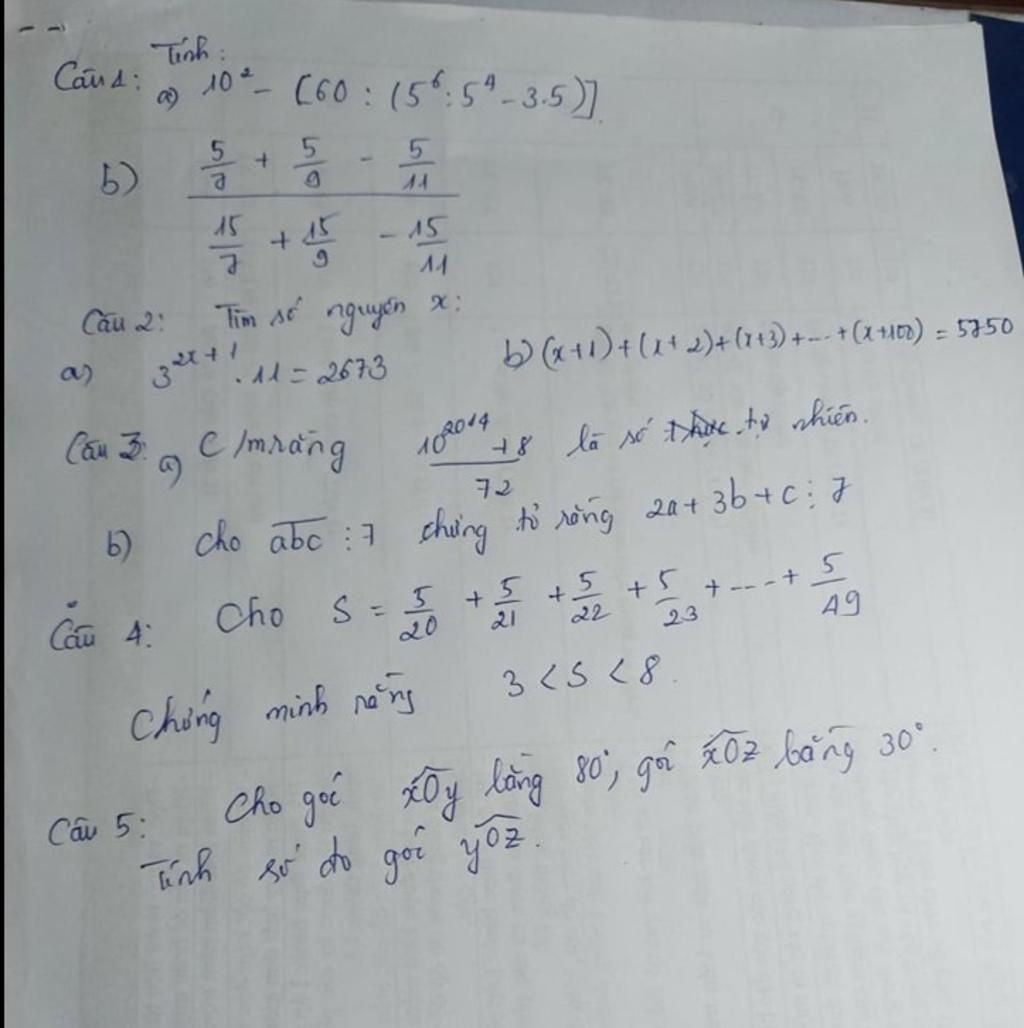 Tính:
Câu 1: a) 10² - [60 : (5⁶ : 5⁴ - 3.5)]
b) (5/7 + 5/9 - 5/11) / (15/7 + 15/9 - 15/11)
Câu 2: Tìm số nguyên x:
a) 3^(2x+1) . 11 = 2673 b) (x+1)+(x+2)+(x+3)+...+(x+100) = 5750
Câu 3: a) C/m rằng (10^2014 + 8) / 72 là số tự nhiên.
b) Cho abc ⋮ 7 chứng tỏ rằng 2a + 3b + c ⋮ 7
Câu 4: Cho S = 5/20 + 5/21 + 5/22 + 5/23 + ... + 5/49
Chứng minh rằng 3 < S < 8.
Câu 5: Cho góc xOy bằng 80°, góc xOz bằng 30°.
Tính số đo góc yOz.